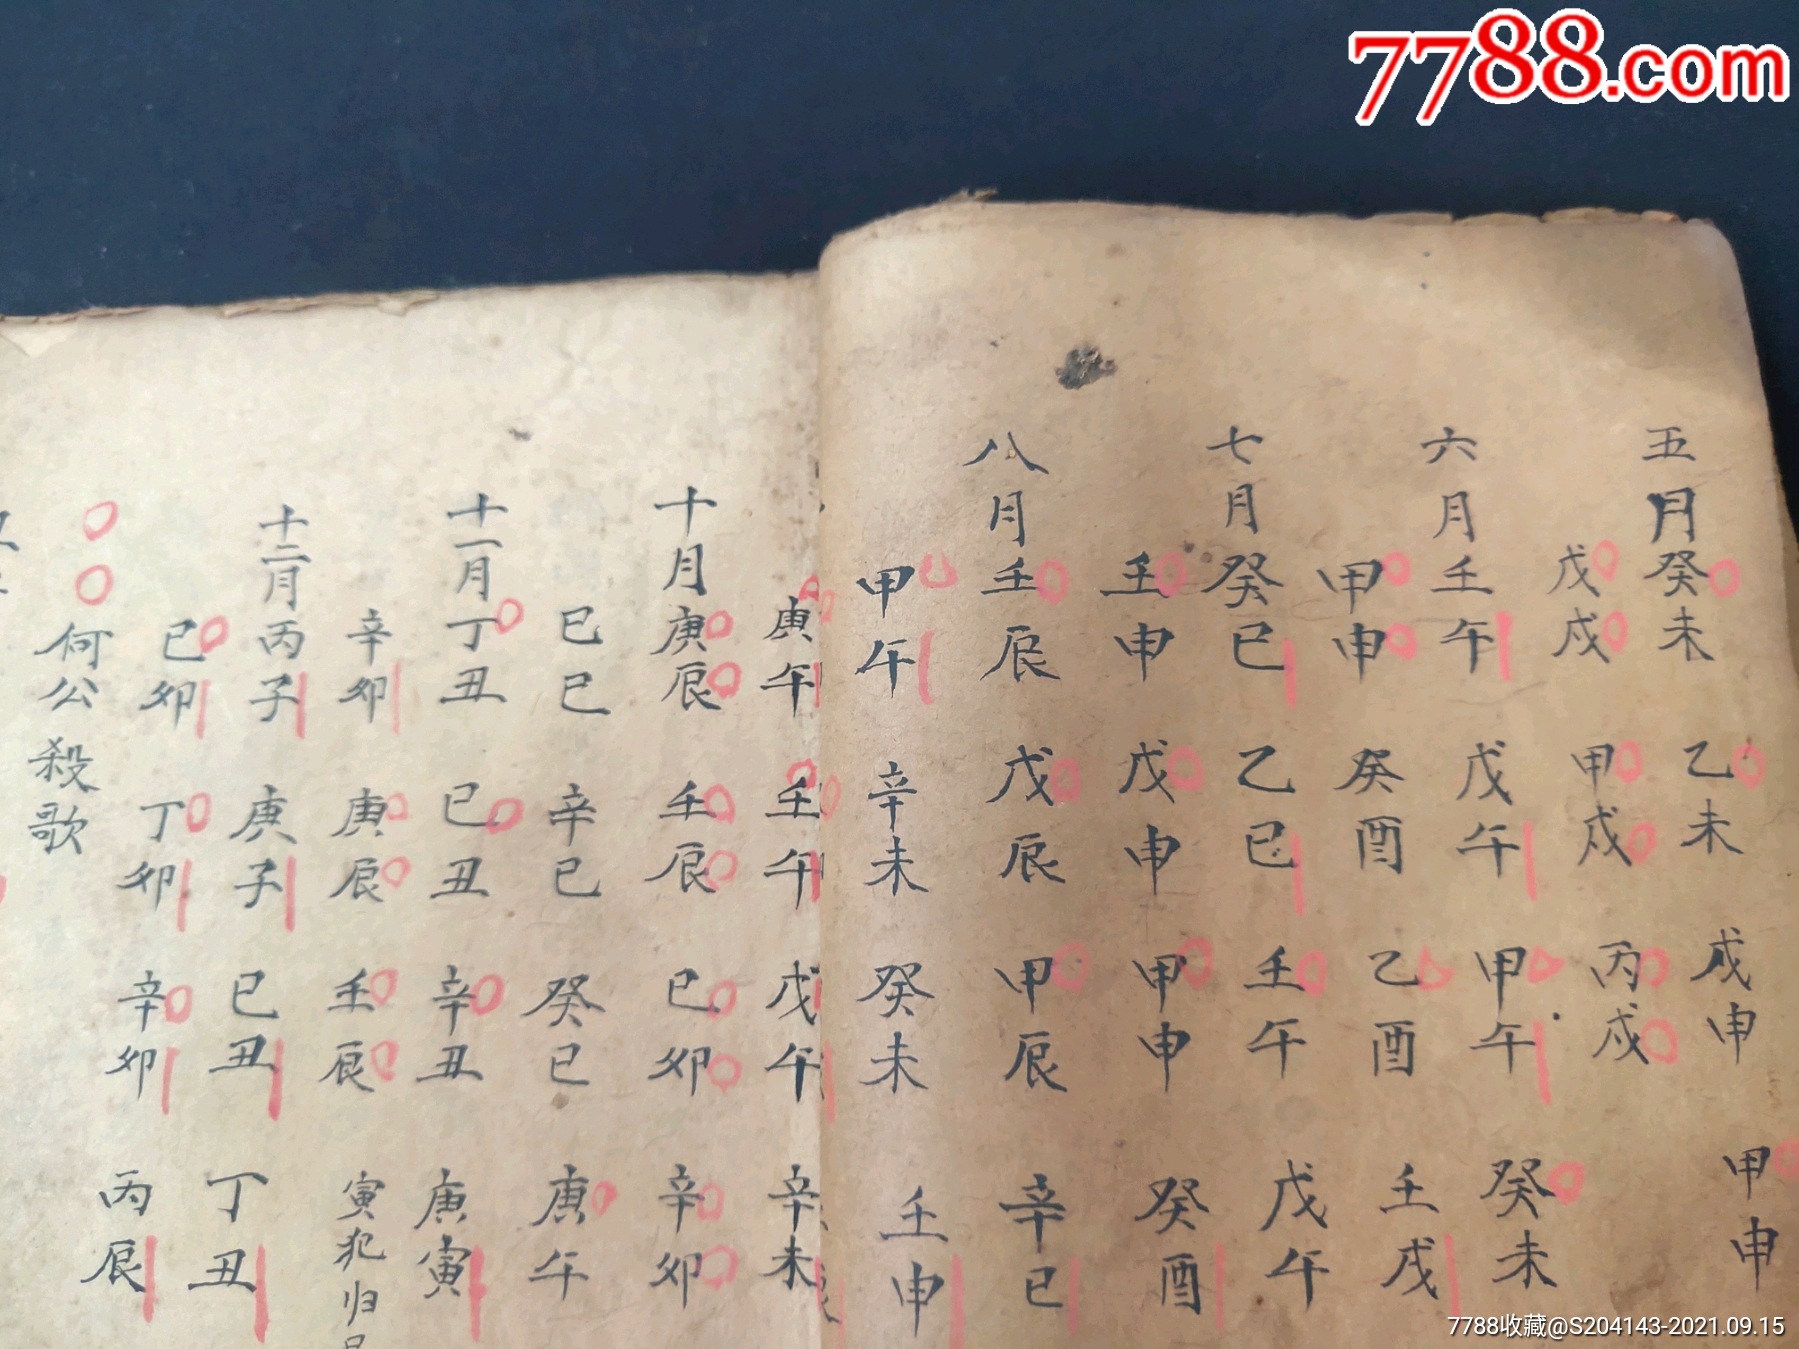 7788.com
五月癸未 乙未 戊申 甲申
戊戌 甲戌 丙戌
六月壬午 戊午 甲午 癸未
甲申 癸酉 乙酉 壬戌
七月癸巳 乙巳 壬午 戊午
壬申 戊申 甲申 癸酉
八月壬辰 戊辰 甲辰 辛巳
甲午 辛未 癸未 壬申
庚午 壬午 戊午 辛未
十月庚辰 壬辰 己卯 辛卯
己巳 辛巳 癸巳 庚午
十一月丁丑 己丑 辛丑 庚寅
辛卯 庚辰 壬辰 寅犯归
十二月丙子 庚子 己丑 丁丑
己卯 丁卯 辛卯 丙辰
何公殺歌
7788收藏@S204143-2021.09.15